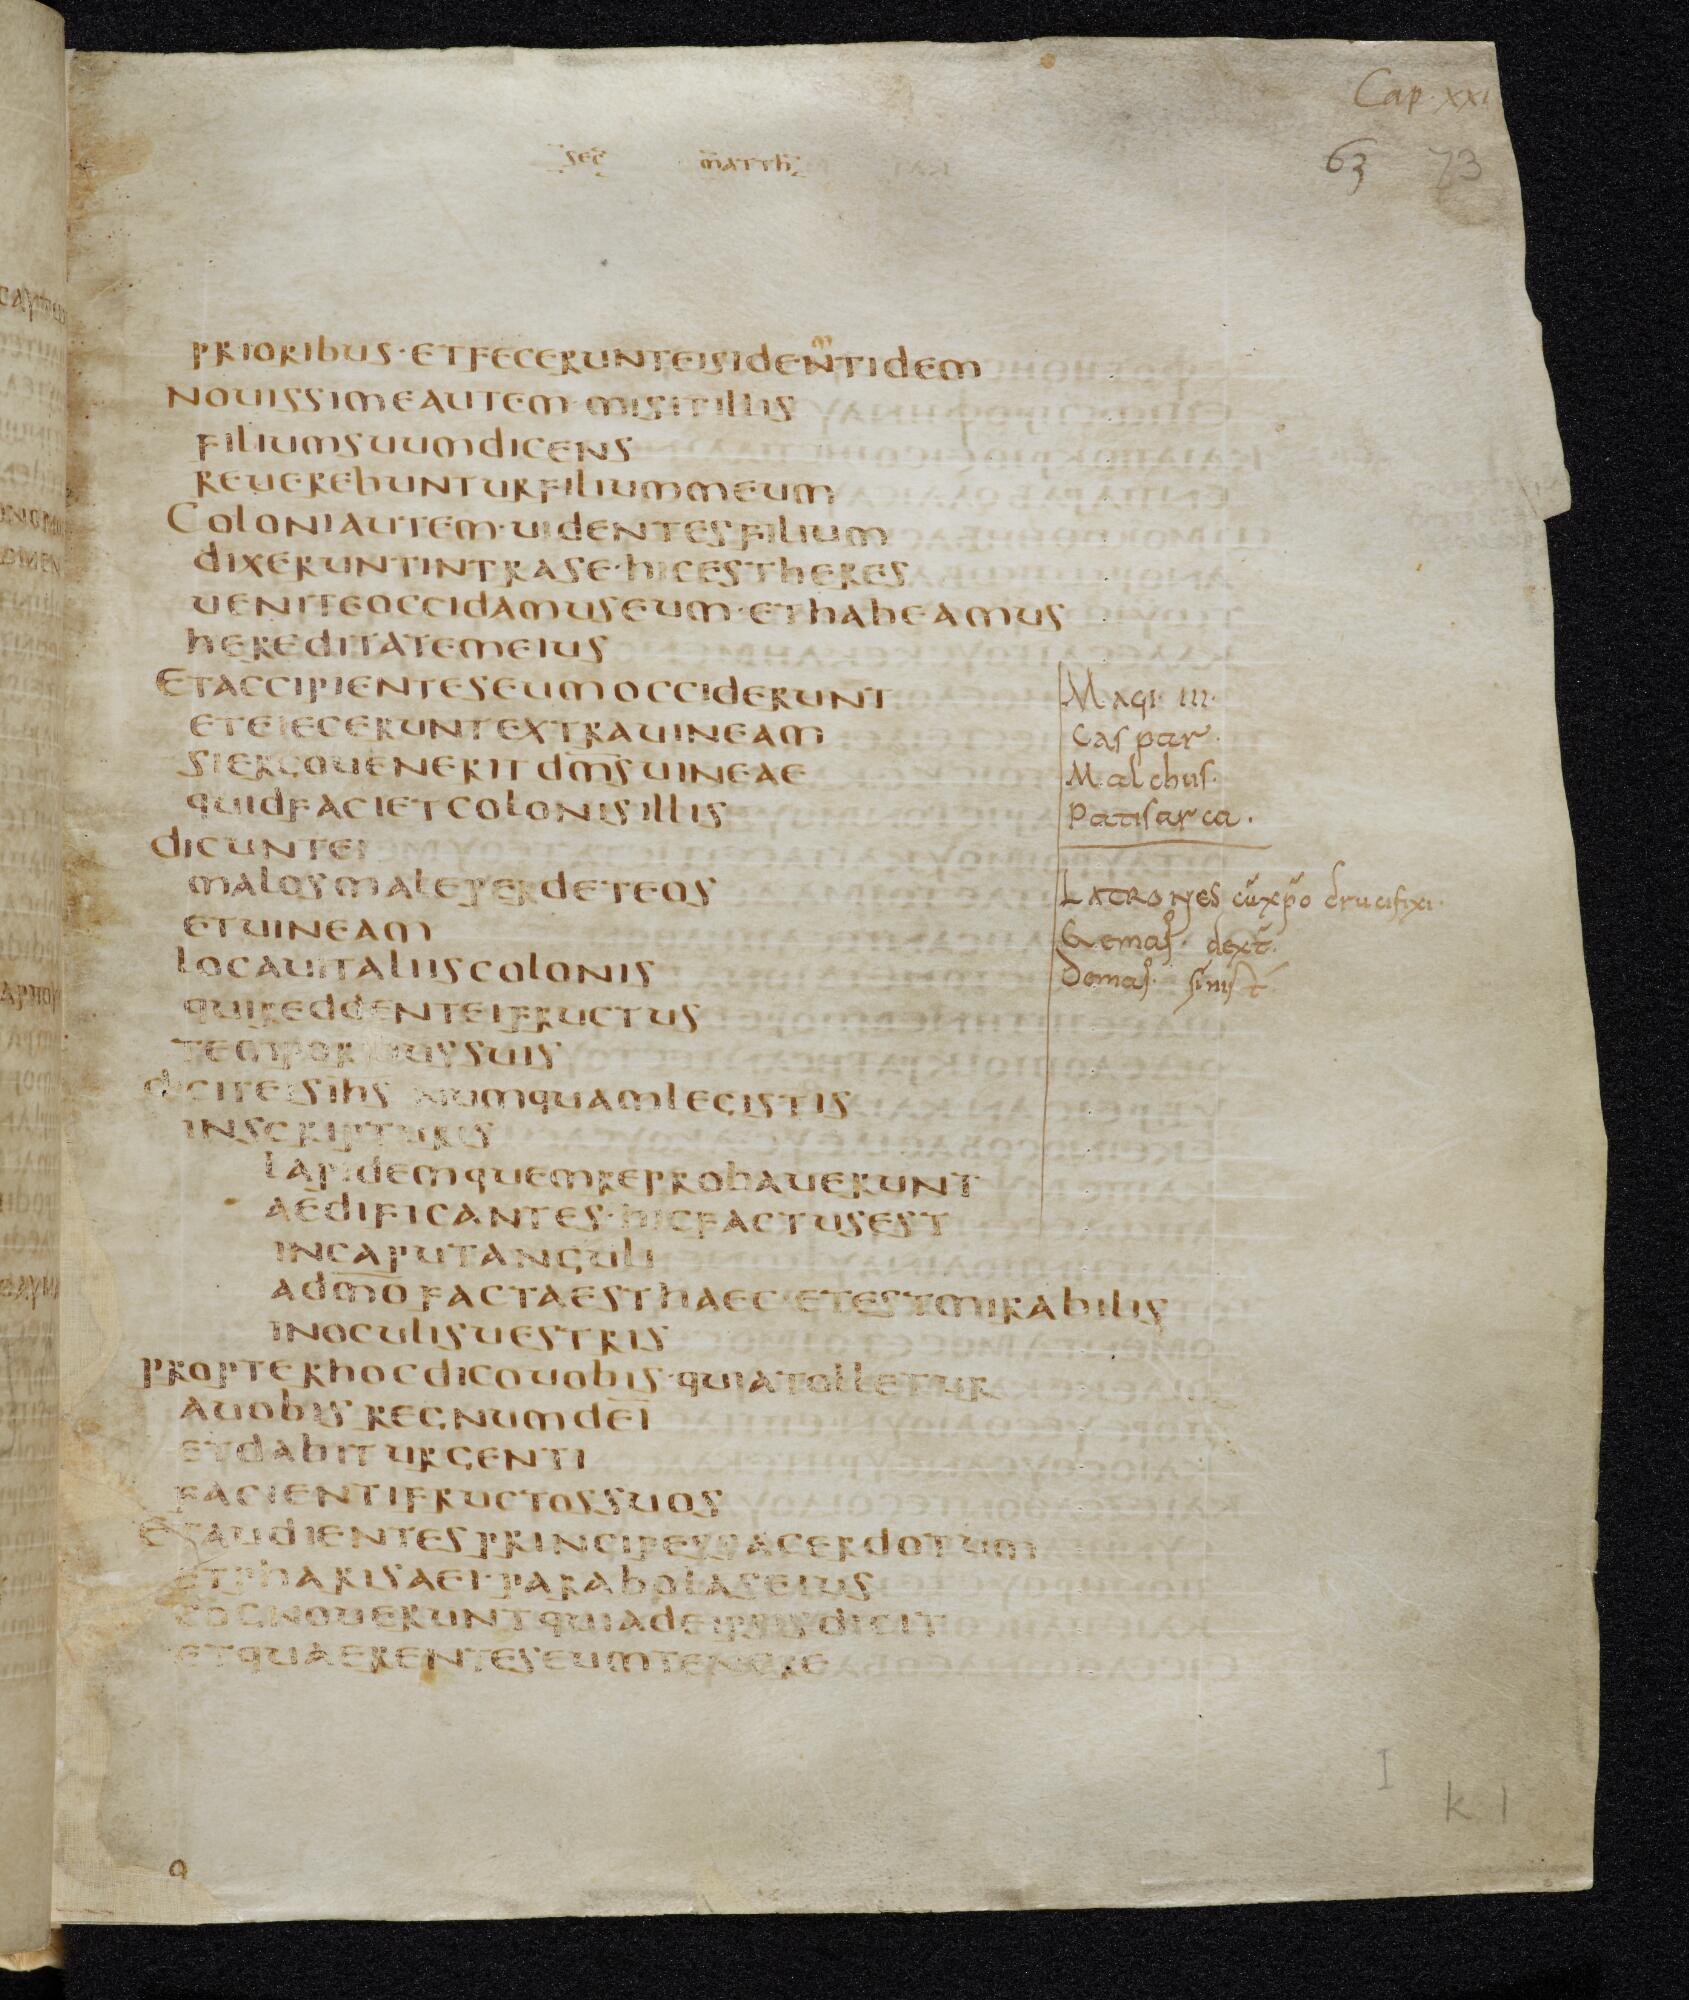 Cap. xxi
63 73
sec̄ mattħ
prioribus · et fecerunt eis identidem
m
nouissime autem misit illis
filium suum dicens
reuerebuntur filium meum
Coloni autem · uidentes filium
dixerunt intra se · hic est heres
uenite occidamus eum · et habeamus
hereditatem eius
Et accipientes eum occiderunt
et eiecerunt extra uineam
si ergo uenerit dm̄s uineae
quid faciet colonis illis
dicunt ei
malos male perdet eos
et uineam
locauit aliis colonis
qui reddent ei fructus
temporibus suis
dicit eis ihs̄ numquam legistis
in scripturis
lapidem quem reprobauerunt
aedificantes · hic factus est
in caput anguli
a dm̄o facta est haec · et est mirabilis
in oculis uestris
propter hoc dico uobis · quia tolletur
a uobis regnum dei̅
et dabitur genti
facienti fructos suos
Et audientes principes sacerdotum
et pharisaei · parabolas eius
cognouerunt quia de ipsis dicit
et quaerentes eum tenere
Magi · III ·
Caspar ·
Malchus ·
Patisarca ·
Latrones cū xp̄o crucifixi ·
Gemas · dext̄ ·
Demas · sinist̄
I
k 1